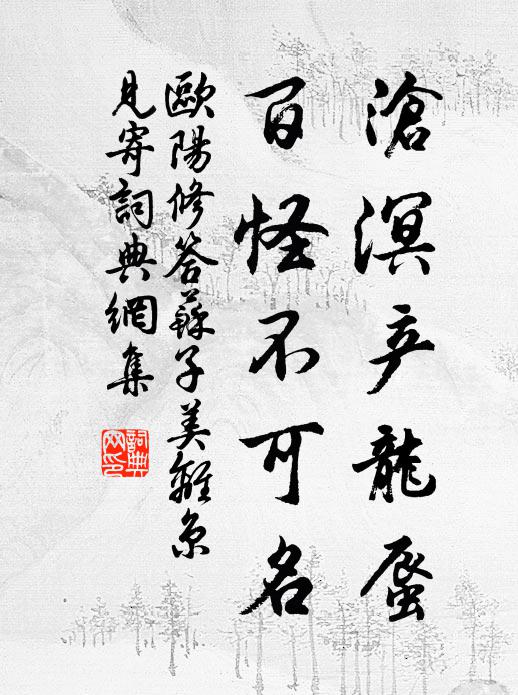 滄溟产龍蜃
百怪不可名
歐陽修答蘇子美離京
見寄詞典網集
詞典网印